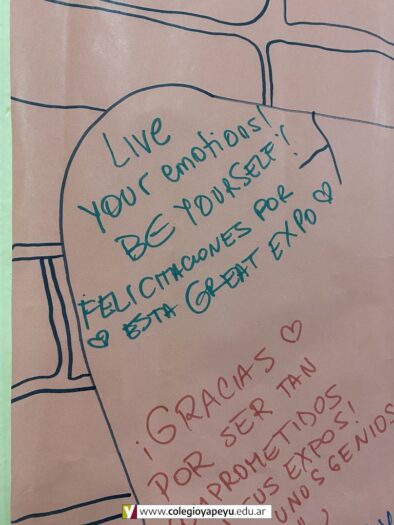 Live
Your emotions!
BE YOURSELF!
FELICITACIONES POR
♡ ESTA GREAT EXPO ♡
¡GRACIAS ♡
POR SER TAN
COMPROMETIDOS
SUS EXPOS!
UNOS GENIOS
www.colegioyapeyu.edu.ar